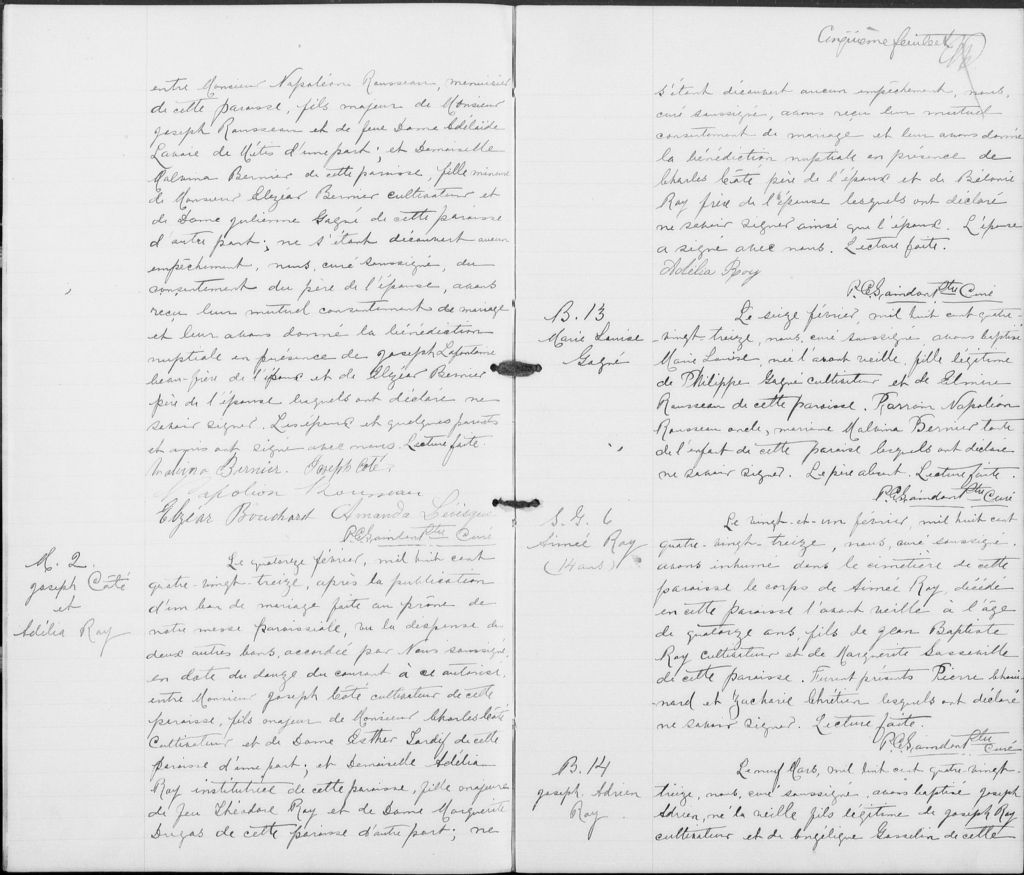 entre Monsieur Napoléon Rousseau, menuisier
de cette paroisse, fils majeur de Monsieur
Joseph Rousseau et de feue Dame Adélaïde
Lavoie de Métis d'une part; et Demoiselle
Malvina Bernier de cette paroisse, fille mineure
de Monsieur Elzéar Bernier cultivateur et
de Dame Julienne Gagné de cette paroisse
d'autre part; ne s'étant découvert aucun
empêchement, nous, curé soussigné, du
consentement du père de l'épouse, avons
reçu leur mutuel consentement de mariage
et leur avons donné la bénédiction
nuptiale en présence de Joseph Lafontaine
beau-père de l'époux et de Elzéar Bernier
père de l'épouse lesquels ont déclaré ne
savoir signer. Les époux et quelques parents
et amis ont signé avec nous. Lecture faite
Malvina Bernier. Joseph Coté.
Napoléon Rousseau
Elzéar Bouchard Amanda
P.C. Saindon Ptre Curé
M. 2.
Joseph Côté
et
Adélia Roy
Le quatorze février, mil huit cent
quatre-vingt-treize, après la publication
d'un ban de mariage faite au prône de
notre messe paroissiale, vu la dispense de
deux autres bans, accordée par Nous soussigné,
en date du douze du courant à ce autorisé,
entre Monsieur Joseph Côté cultivateur de cette
paroisse, fils majeur de Monsieur Charles Côté
Cultivateur et de Dame Esther Tardif de cette
paroisse d'une part; et Demoiselle Adélia
Roy institutrice de cette paroisse, fille majeure
de feu Théodore Roy et de Dame Marguerite
Dugas de cette paroisse d'autre part; ne
Cinquième feuillet
s'étant découvert aucun empêchement, nous,
curé soussigné, avons reçu leur mutuel
consentement de mariage et leur avons donné
la bénédiction nuptiale en présence de
Charles Côté père de l'époux et de Bélonie
Roy frère de l'épouse lesquels ont déclaré
ne savoir signer ainsi que l'époux. L'épouse
a signé avec nous. Lecture faite.
Adélia Roy
P.C. Saindon Ptre Curé
B. 13
Marie Louise
Gagné
Le seize février, mil huit cent quatre-
-vingt-treize, nous, curé soussigné, avons baptisé
Marie Louise, née l'avant veille, fille légitime
de Philippe Gagné cultivateur et de Elmire
Rousseau de cette paroisse. Parrain Napoléon
Rousseau oncle, marraine Malvina Bernier tante
de l'enfant de cette paroisse lesquels ont déclaré
ne savoir signer. Le père absent. Lecture faite.
P.C. Saindon Ptre Curé
S. G. 6
Aimée Roy
(14 ans)
Le vingt-et-un février, mil huit cent
quatre-vingt-treize, nous, curé soussigné,
avons inhumé dans le cimetière de cette
paroisse le corps de Aimée Roy, décédé
en cette paroisse l'avant veille à l'âge
de quatorze ans, fils de Jean Baptiste
Roy cultivateur et de Marguerite Lasseville
de cette paroisse. Furent présents Pierre Choui-
nard et Zacharie Chrétien lesquels ont déclaré
ne savoir signer. Lecture faite.
P.C. Saindon Ptre Curé
B. 14
Joseph Adrien
Roy
Le neuf Mars, mil huit cent quatre-vingt-
treize, nous, curé soussigné, avons baptisé Joseph
Adrien, né la veille fils légitime de Joseph Roy
cultivateur et de Angélique Gosselin de cette